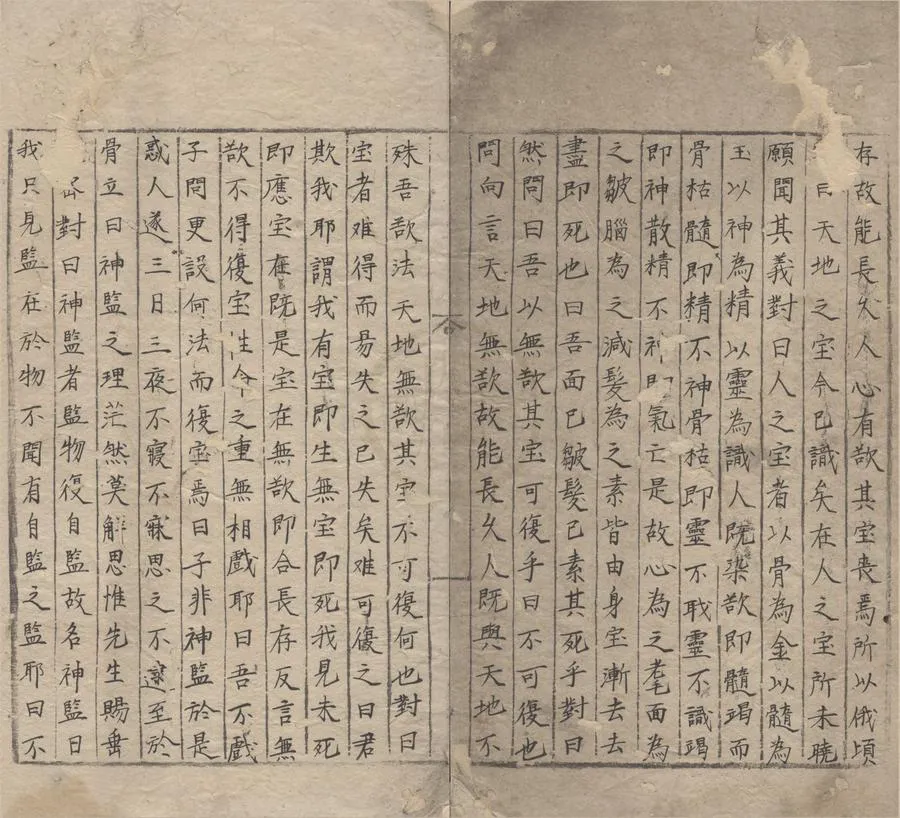 存故能長久人心有欲其宝丧焉所以俄頃
曰天地之宝今已識矣在人之宝所未曉
願聞其義對曰人之宝者以骨為金以髓為
玉以神為精以靈為識人既染欲即髓竭而
骨枯髓即精不神骨枯即靈不聀靈不識竭
即神散精不神即氣亡是故心為之耄面為
之皺腦為之減髮為之素皆由身宝漸去去
盡即死也曰吾面已皺髮已素其死乎對曰
然問曰吾以無欲其宝可復乎曰不可復也
問向言天地無欲故能長久人既與天地不
殊吾欲法天地無欲其宝不可復何也對曰
宝者难得而易失之已失矣难可復之曰君
欺我耶謂我有宝即生無宝即死我見未死
即應宝在既是宝在無欲即合長存反言無
欲不得復宝性命之重無相戲耶曰吾不戲
子問更設何法而復宝焉曰子非神監於是
惑人遂三日三夜不寢不寐思之不邃至於
骨立曰神監之理茫然莫解思惟先生賜垂
對曰神監者監物復自監故名神監曰
我只見監在於物不聞有自監之監耶曰不